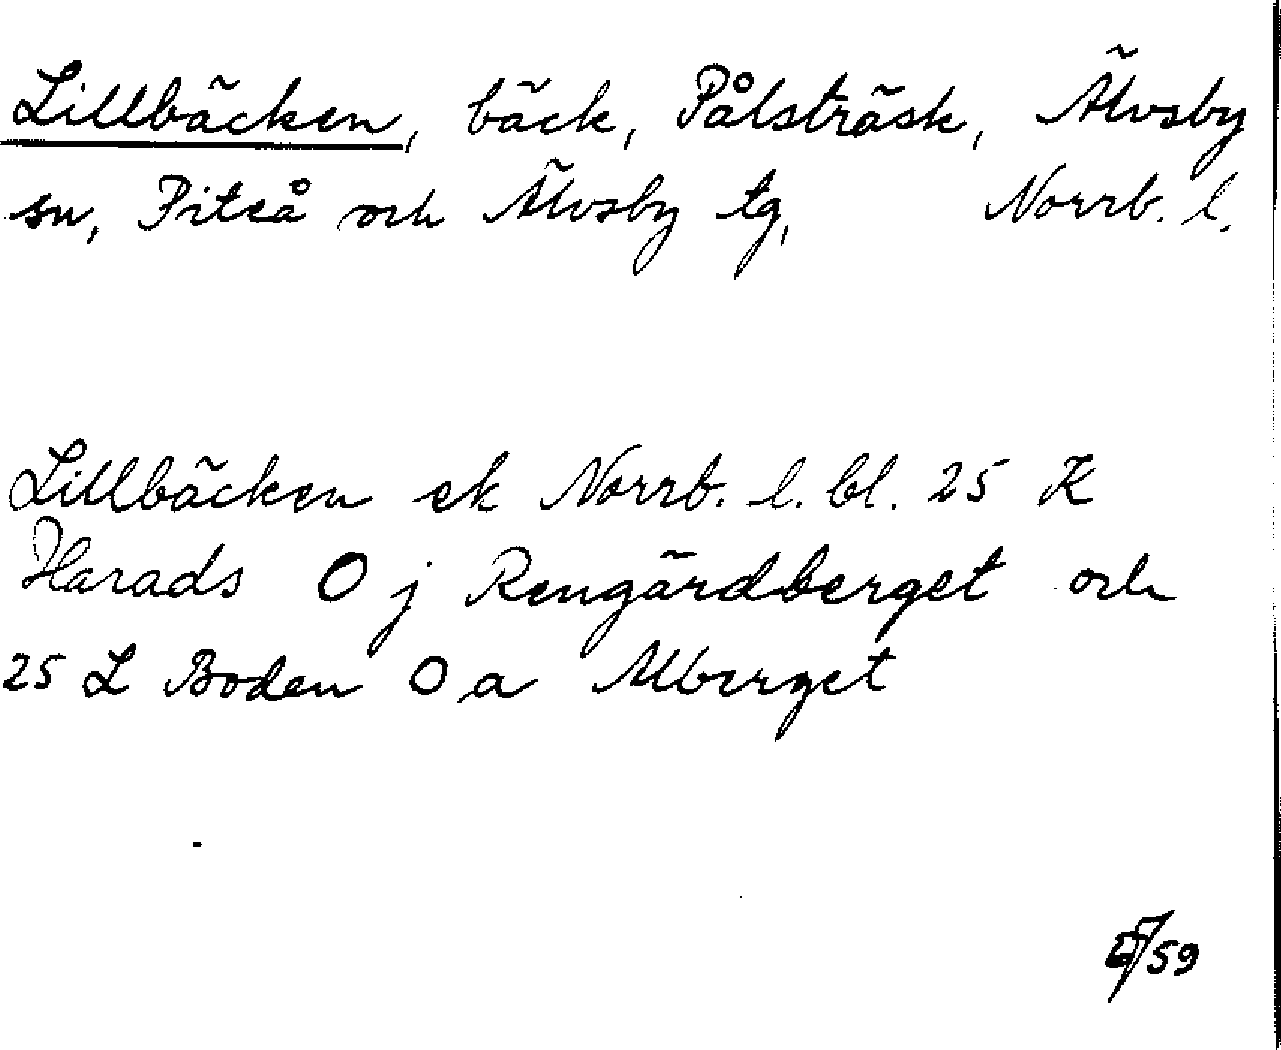 Lillbäcken, bäck, Pålsträsk, Älvsby
sn, Piteå och Älvsby tg, Norrb. l.
Lillbäcken ek Norrb. l. bl. 25 K
Harads 0 j Rengärdberget och
25 L Boden 0 a Alberget
59